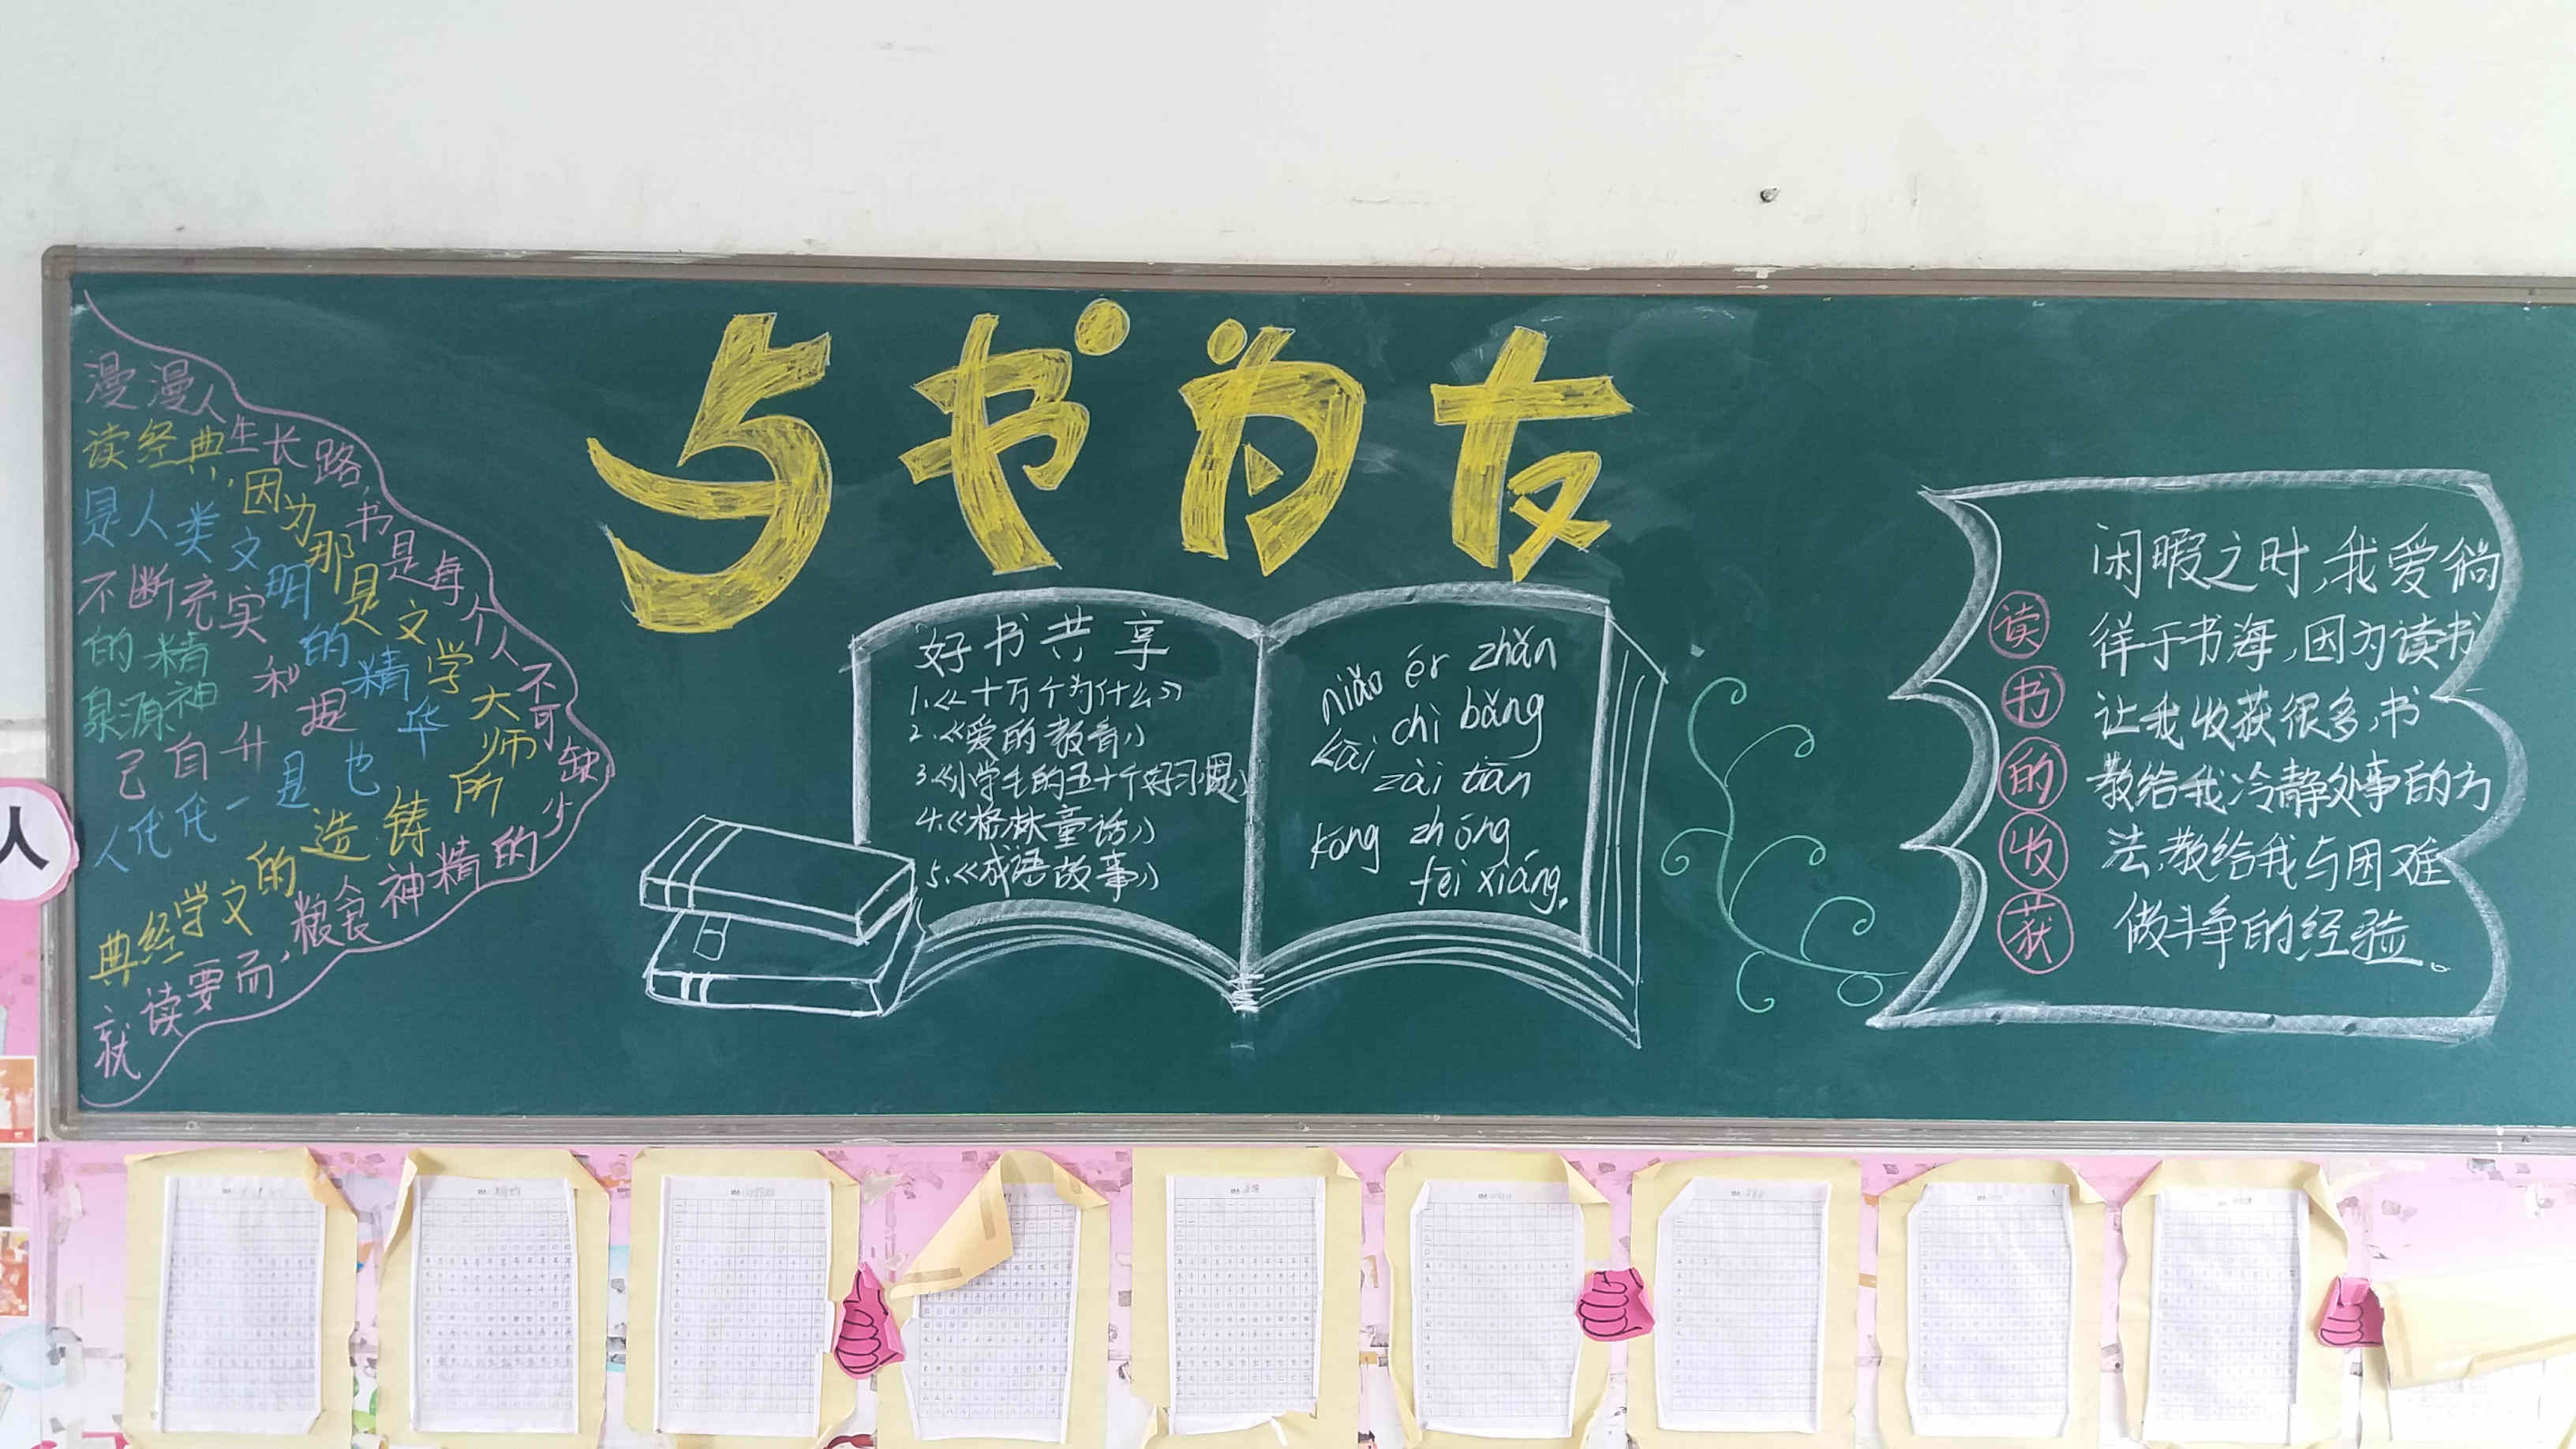 与书为友
漫漫人生长路,书是每个人不可缺少的精神粮食,而要读就
读经典,因为那是文学大师所铸造的文学经典
是人类文明的精华也是一代代人
不断充实和提升自己
的精神源泉
好书共享
1.《十万个为什么》
2.《爱的教育》
3.《小学生的五十个好习惯》
4.《格林童话》
5.《成语故事》
niǎo ér zhǎn
kāi chì bǎng
zài tiān
kōng zhōng
fēi xiáng.
读书的收获
闲暇之时,我爱徜
徉于书海,因为读书
让我收获很多,书
教给我冷静处事的方
法,教给我与困难
做斗争的经验。
人